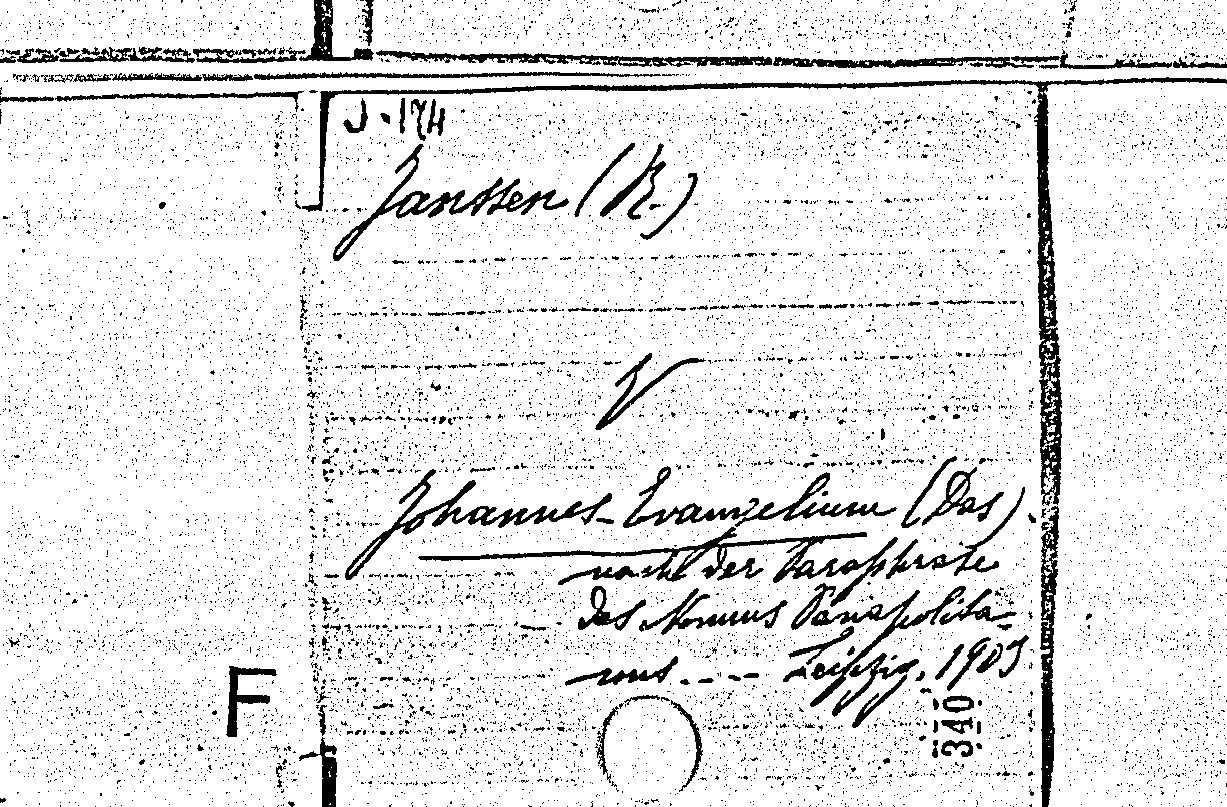 J.174
Janssen (R.)
V
Johannes-Evangelium (Das)
nach der Paraphrase
des Nonnus Panopolita-
nus.... Leipzig, 1903
F
340